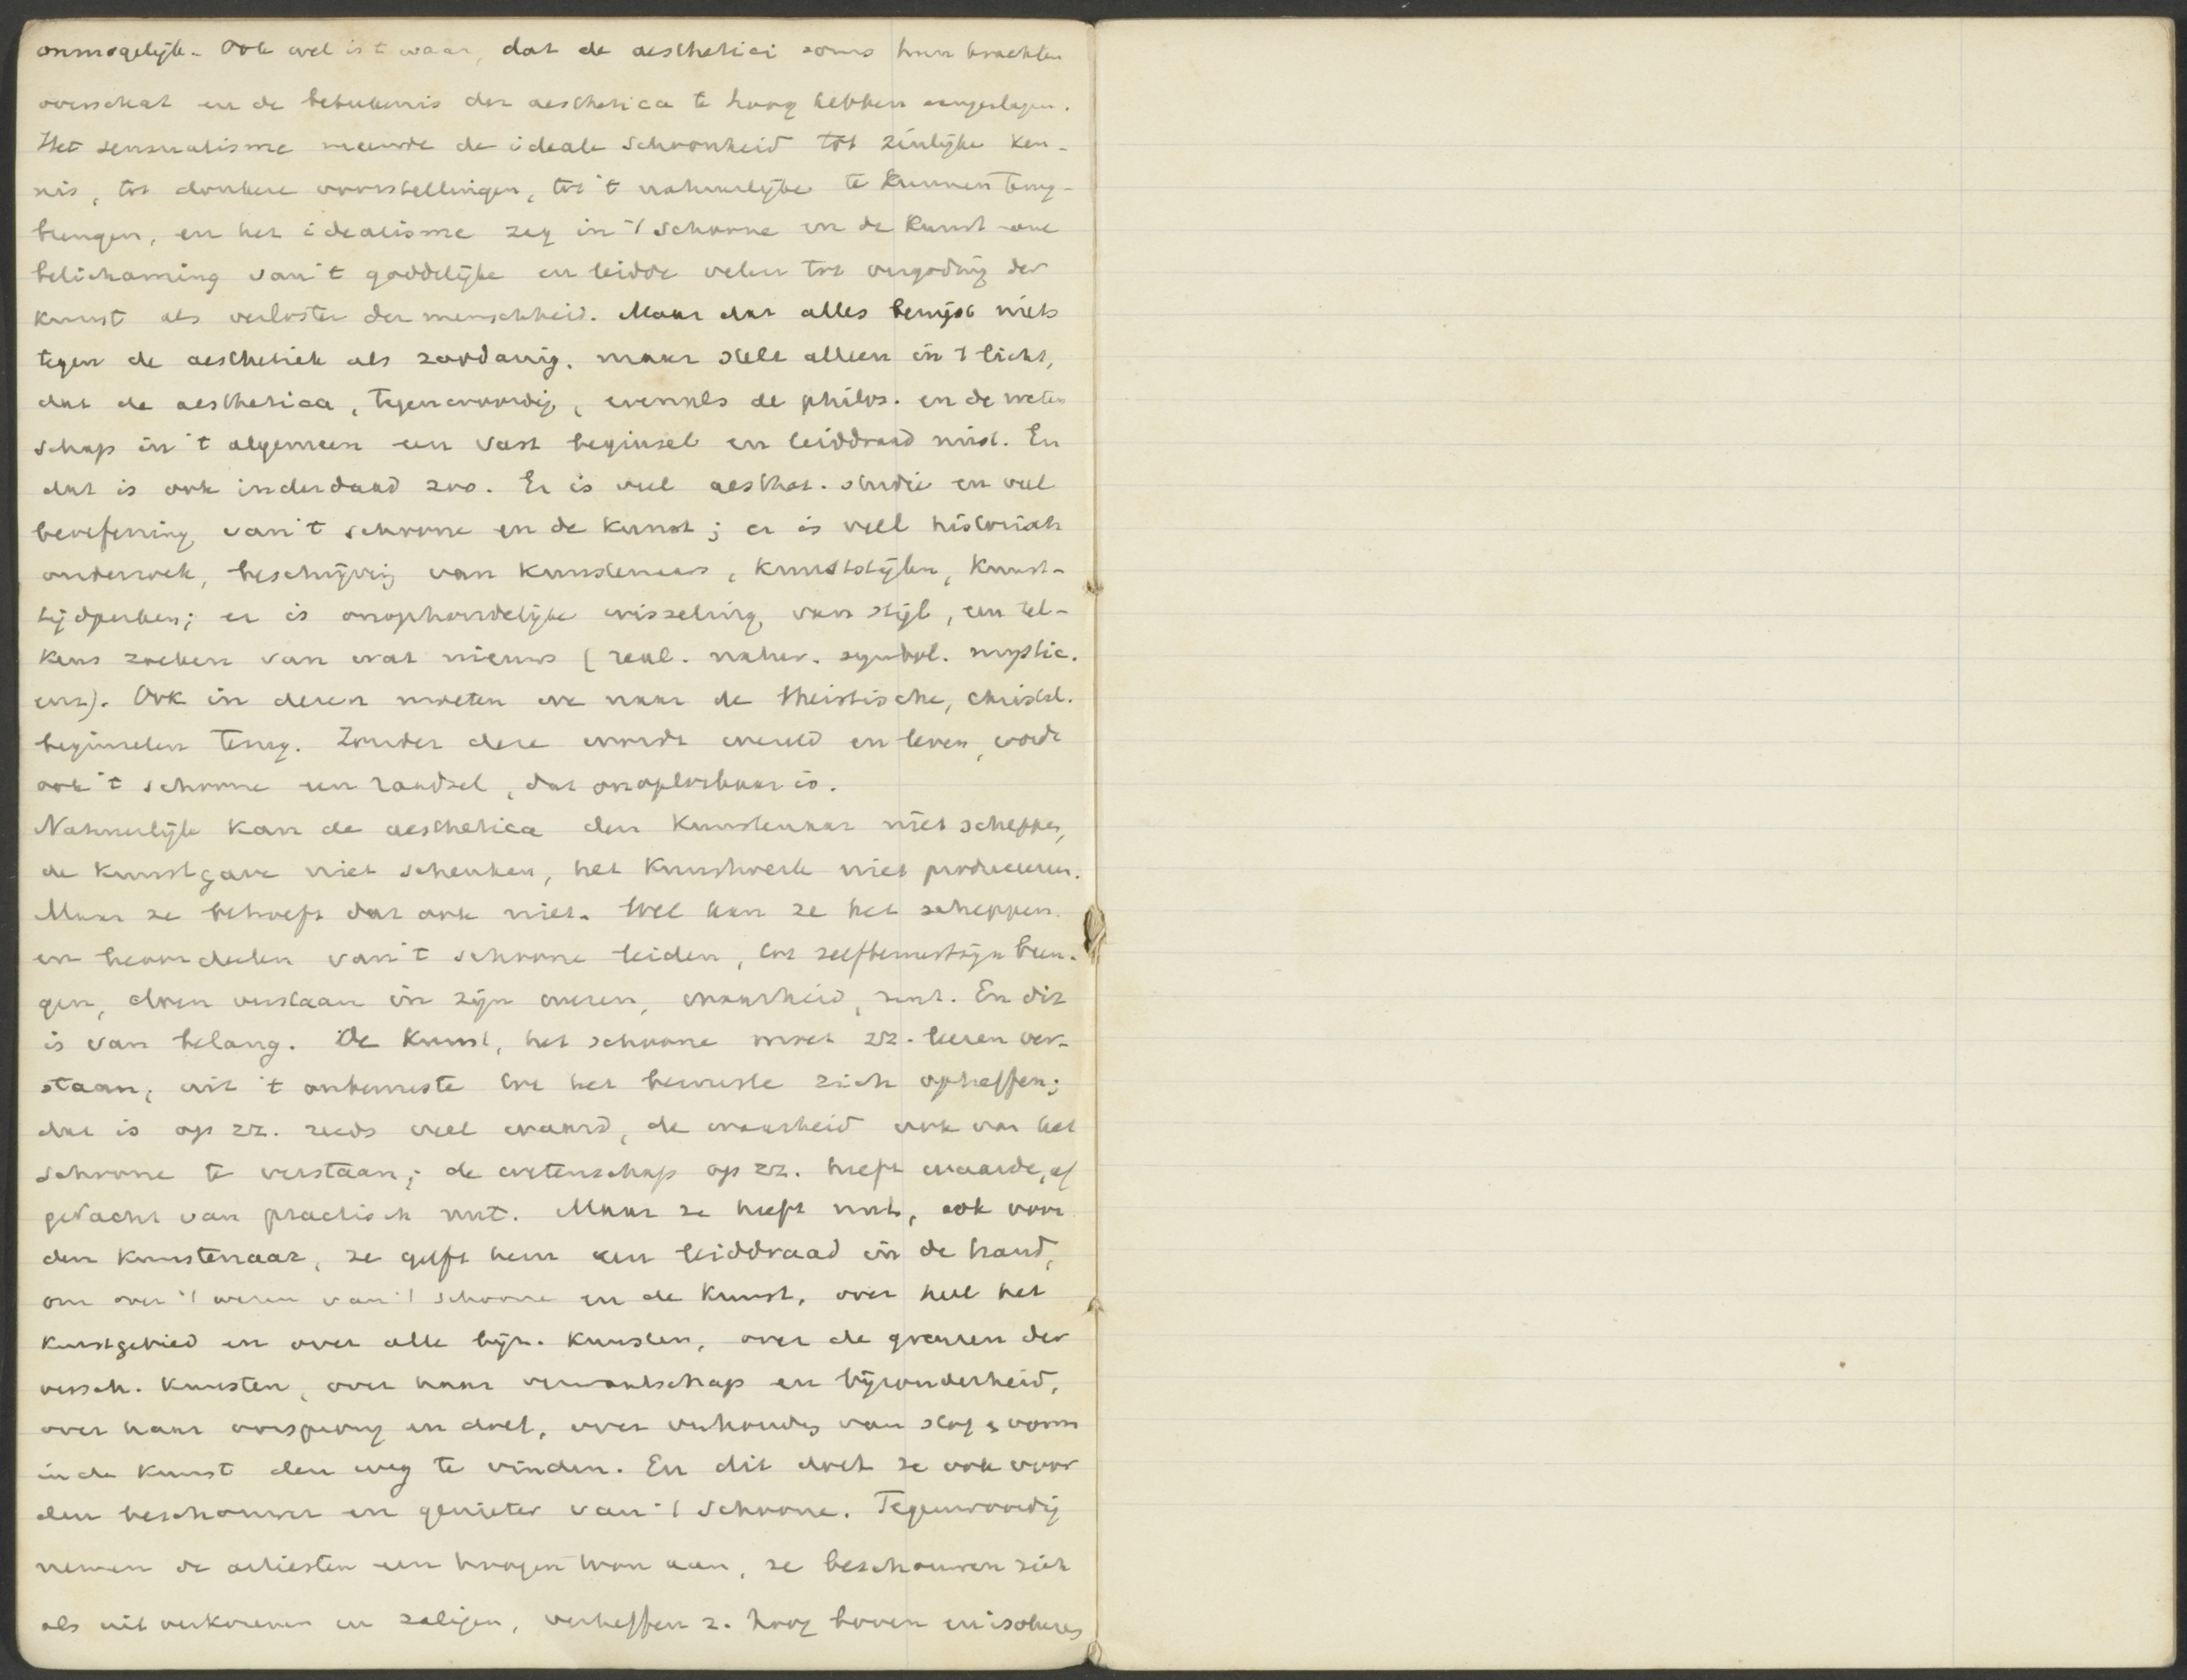 onmogelijk. Ook wel is 't waar, dat de aesthetici soms hun krachten
overschat en de beteekenis der aesthetica te hoog hebben aangeslagen.
Het sensualisme meende de ideale schoonheid tot zinlijke ken-
nis, tot donkere voorstellingen, tot 't natuurlijke te kunnen terug-
brengen, en het idealisme zag in 't schoone en de kunst eene
belichaming van 't goddelijke en leidde velen tot vergoding der
kunst als verlosster der menschheid. Maar dat alles bewijst niets
tegen de aesthetiek als zoodanig, maar stelt alleen in 't licht,
dat de aesthetica, tegenwoordig, evenals de philos. en de weten
schap in 't algemeen een vast beginsel en leiddraad mist. En
dat is ook inderdaad zoo. Er is veel aesthet. studie en veel
beoefening van 't schoone en de kunst; er is veel historisch
onderzoek, beschrijving van kunstenaars, kunststijlen, kunst-
tijdperken; er is onophoudelijke wisseling van stijl, een tel-
kens zoeken van wat nieuws (real. natur. symbol. mystic.
enz). Ook in dezen moeten we naar de theistische, christel.
beginselen terug. Zonder deze wordt wereld en leven, wordt
ook 't schoone een raadsel, dat onoplosbaar is.
Natuurlijk kan de aesthetica den kunstenaar niet scheppen,
de kunstgave niet schenken, het kunstwerk niet produceeren.
Maar ze behoeft dat ook niet. Wel kan ze het scheppen
en beoordeelen van 't schoone leiden, tot zelfbewustzijn bren-
gen, doen verstaan in zijn wezen, waarheid, enz. En dit
is van belang. De kunst, het schoone moet zz. leeren ver-
staan, uit 't onbewuste tot het bewuste zich opheffen;
dat is op zz. reeds veel waard, de waarheid ook van het
schoone te verstaan; de wetenschap op zz. heeft waarde, af
gedacht van practisch nut. Maar ze heeft nut, ook voor
den kunstenaar, ze geeft hem een leiddraad in de hand,
om over 't wezen van 't schoone en de kunst, over heel het
kunstgebied en over alle bijz. kunsten, over de grenzen der
versch. kunsten, over haar verwantschap en bijzonderheid,
over haar oorsprong en doel, over verhouding van stof & vorm
in de kunst den weg te vinden. En dit doet ze ook voor
den beschouwer en genieter van 't schoone. Tegenwoordig
nemen de artiesten een hoogen toon aan, ze beschouwen zich
als uitverkorenen en zaligen, verheffen z. hoog boven en isoleeren